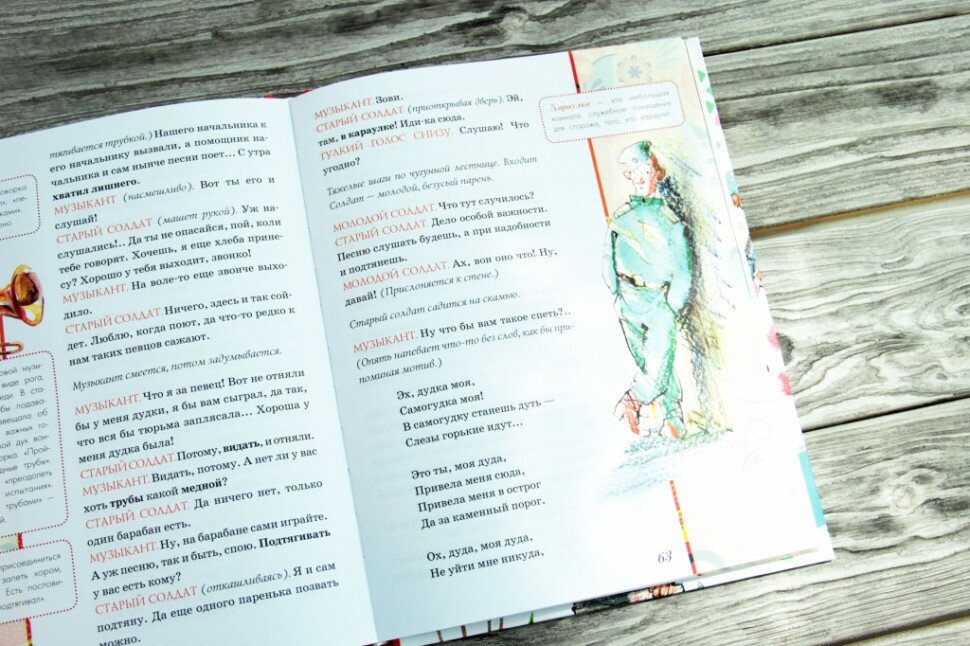 тягивается трубкой.) Нашего начальника к
его начальнику вызвали, а помощник на-
чальника и сам нынче песни поет... С утра
хватил лишнего.
МУЗЫКАНТ (насмешливо). Вот ты его и
слушай!
СТАРЫЙ СОЛДАТ (машет рукой). Уж на-
слушались!.. Да ты не опасайся, пой, коли
тебе говорят. Хочешь, я еще хлеба прине-
су? Хорошо у тебя выходит, звонко!
МУЗЫКАНТ. На воле-то еще звонче выхо-
дило.
СТАРЫЙ СОЛДАТ. Ничего, здесь и так сой-
дет. Люблю, когда поют, да что-то редко к
нам таких певцов сажают.
Музыкант смеется, потом задумывается.
МУЗЫКАНТ. Что я за певец! Вот не отняли
бы у меня дудки, я бы вам сыграл, да так,
что вся бы тюрьма заплясала... Хороша у
меня дудка была!
СТАРЫЙ СОЛДАТ. Потому, видать, и отняли.
МУЗЫКАНТ. Видать, потому. А нет ли у вас
хоть трубы какой медной?
СТАРЫЙ СОЛДАТ. Да ничего нет, только
один барабан есть.
МУЗЫКАНТ. Ну, на барабане сами играйте.
А уж песню, так и быть, спою. Подтягивать
у вас есть кому?
СТАРЫЙ СОЛДАТ (откашливаясь). Я и сам
подтяну. Да еще одного паренька позвать
можно.
оворка
их, «пе-
иками».
овой музы-
виде рога,
еди. В ста-
бы подава-
овещала об
важных го-
ой дух вои-
орка: «Прой-
дные трубы».
«преодолеть
испытания».
трубами» —
й
присоединиться
запеть хором,
Есть послови-
подтягивал».
МУЗЫКАНТ. Зови.
СТАРЫЙ СОЛДАТ (приоткрывая дверь). Эй,
там, в караулке! Иди-ка сюда.
ГУЛКИЙ ГОЛОС СНИЗУ. Слушаю! Что
угодно?
Тяжелые шаги по чугунной лестнице. Входит
Солдат — молодой, безусый парень.
МОЛОДОЙ СОЛДАТ. Что тут случилось?
СТАРЫЙ СОЛДАТ. Дело особой важности.
Песню слушать будешь, а при надобности
и подтянешь.
МОЛОДОЙ СОЛДАТ. Ах, вон оно что! Ну,
давай! (Прислоняется к стене.)
Старый солдат садится на скамью.
МУЗЫКАНТ. Ну что бы вам такое спеть?..
(Опять напевает что-то без слов, как бы при-
поминая мотив.)
Эх, дудка моя,
Самогудка моя!
В самогудку станешь дуть —
Слезы горькие идут...
Это ты, моя дуда,
Привела меня сюда,
Привела меня в острог
Да за каменный порог.
Ох, дуда, моя дуда,
Не уйти мне никуда,
Караулка — это небольшая
комната, служебное помещение
для сторожа, того, кто караулит.
63